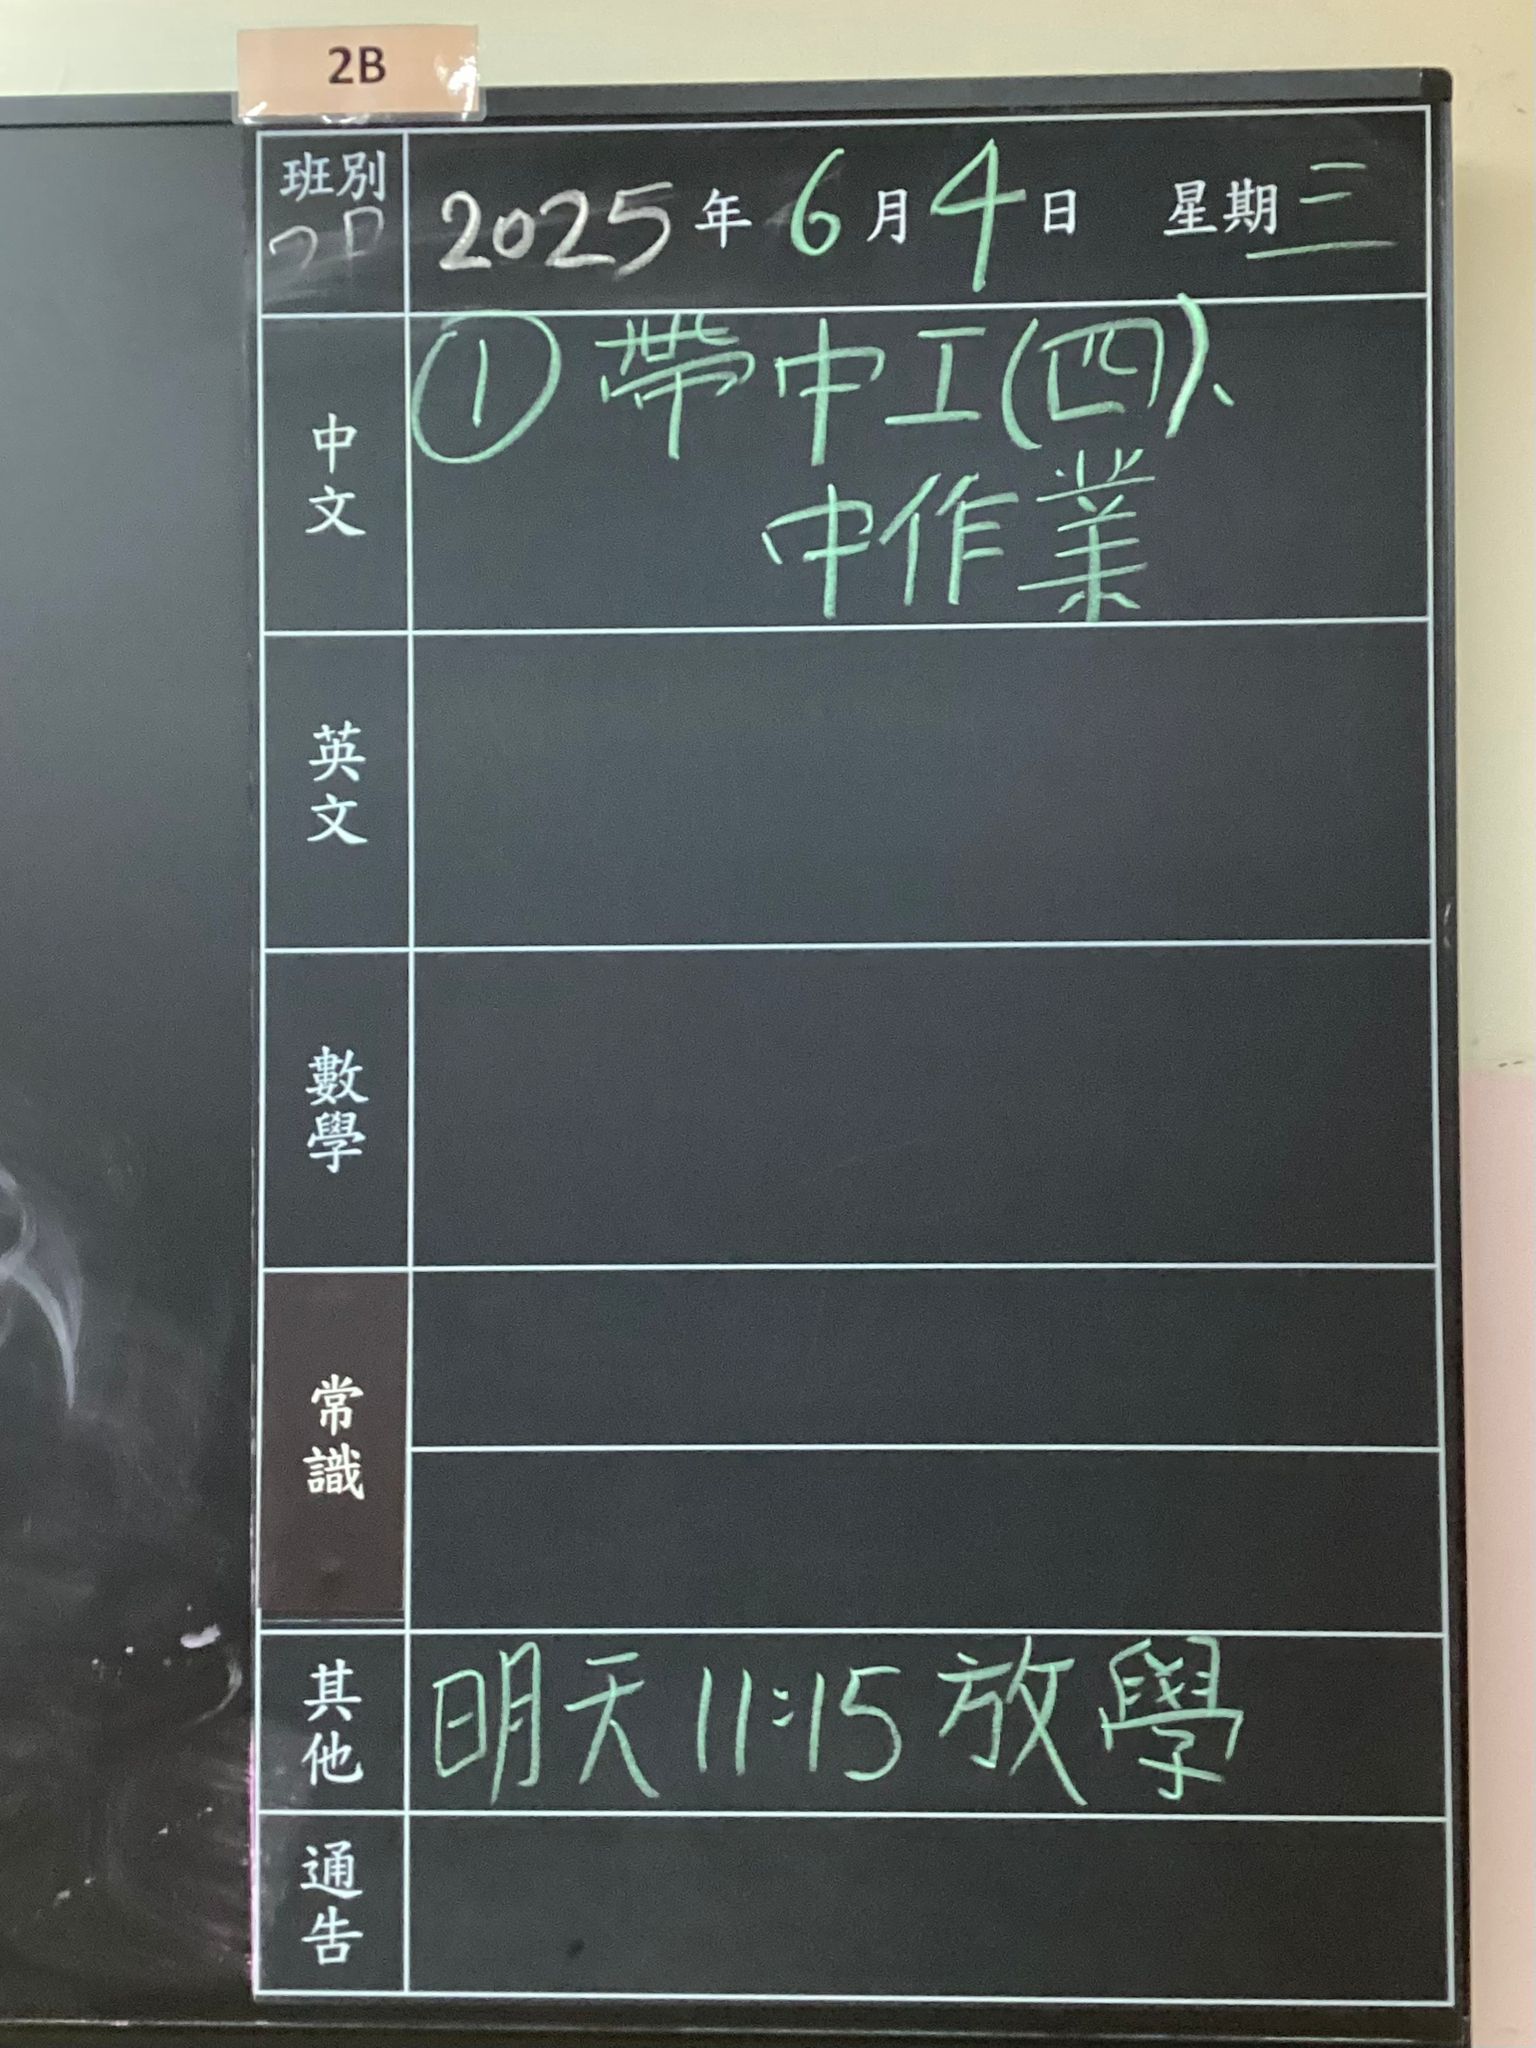 2B
班別
2025年6月4日 星期三
中文
①帶中工(四)、
中作業
英文
數學
常識
其他
明天11:15放學
通告